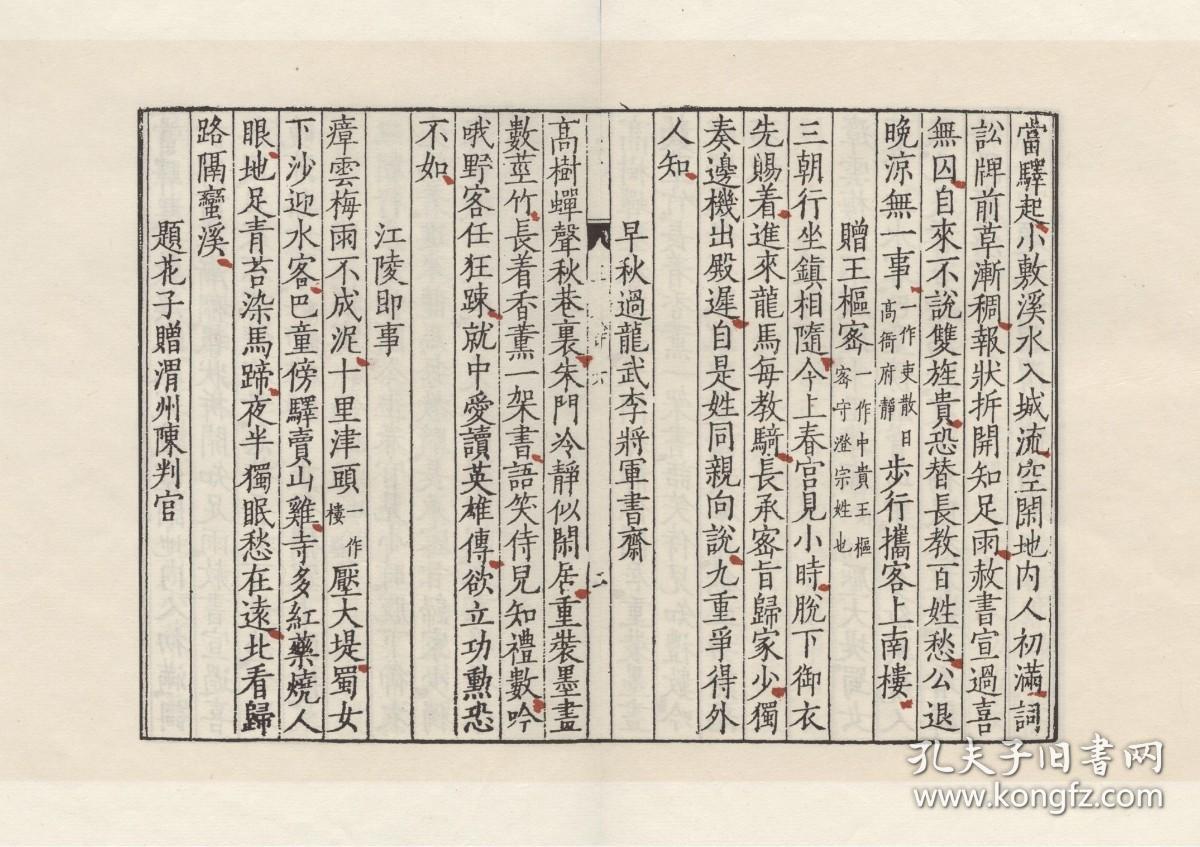 當驛起小敷溪水入城流空閑地内人初滿詞
訟牌前草漸稠報狀拆開知足雨赦書宣過喜
無囚自來不說雙旌貴恐替長教百姓愁公退
晚涼無一事一作吏散日高衙府靜步行攜客上南樓
贈王樞密一作中貴王樞密守澄宗姓也
三朝行坐鎮相隨今上春宮見小時脫下御衣
先賜着進來龍馬每教騎長承密旨歸家少獨
奏邊機出殿遲自是姓同親向說九重爭得外
人知
早秋過龍武李將軍書齋
高樹蟬聲秋巷裏朱門冷靜似閑居重裝墨畫
數莖竹長着香薰一架書語笑侍兒知禮數吟
哦野客任狂踈就中愛讀英雄傳欲立功勳恐
不如
江陵即事
瘴雲梅雨不成泥十里津頭一作樓壓大堤蜀女
下沙迎水客巴童傍驛賣山雞寺多紅藥燒人
眼地足青苔染馬蹄夜半獨眠愁在遠北看歸
路隔蠻溪
題花子贈渭州陳判官
孔夫子旧书网
www.kongfz.com